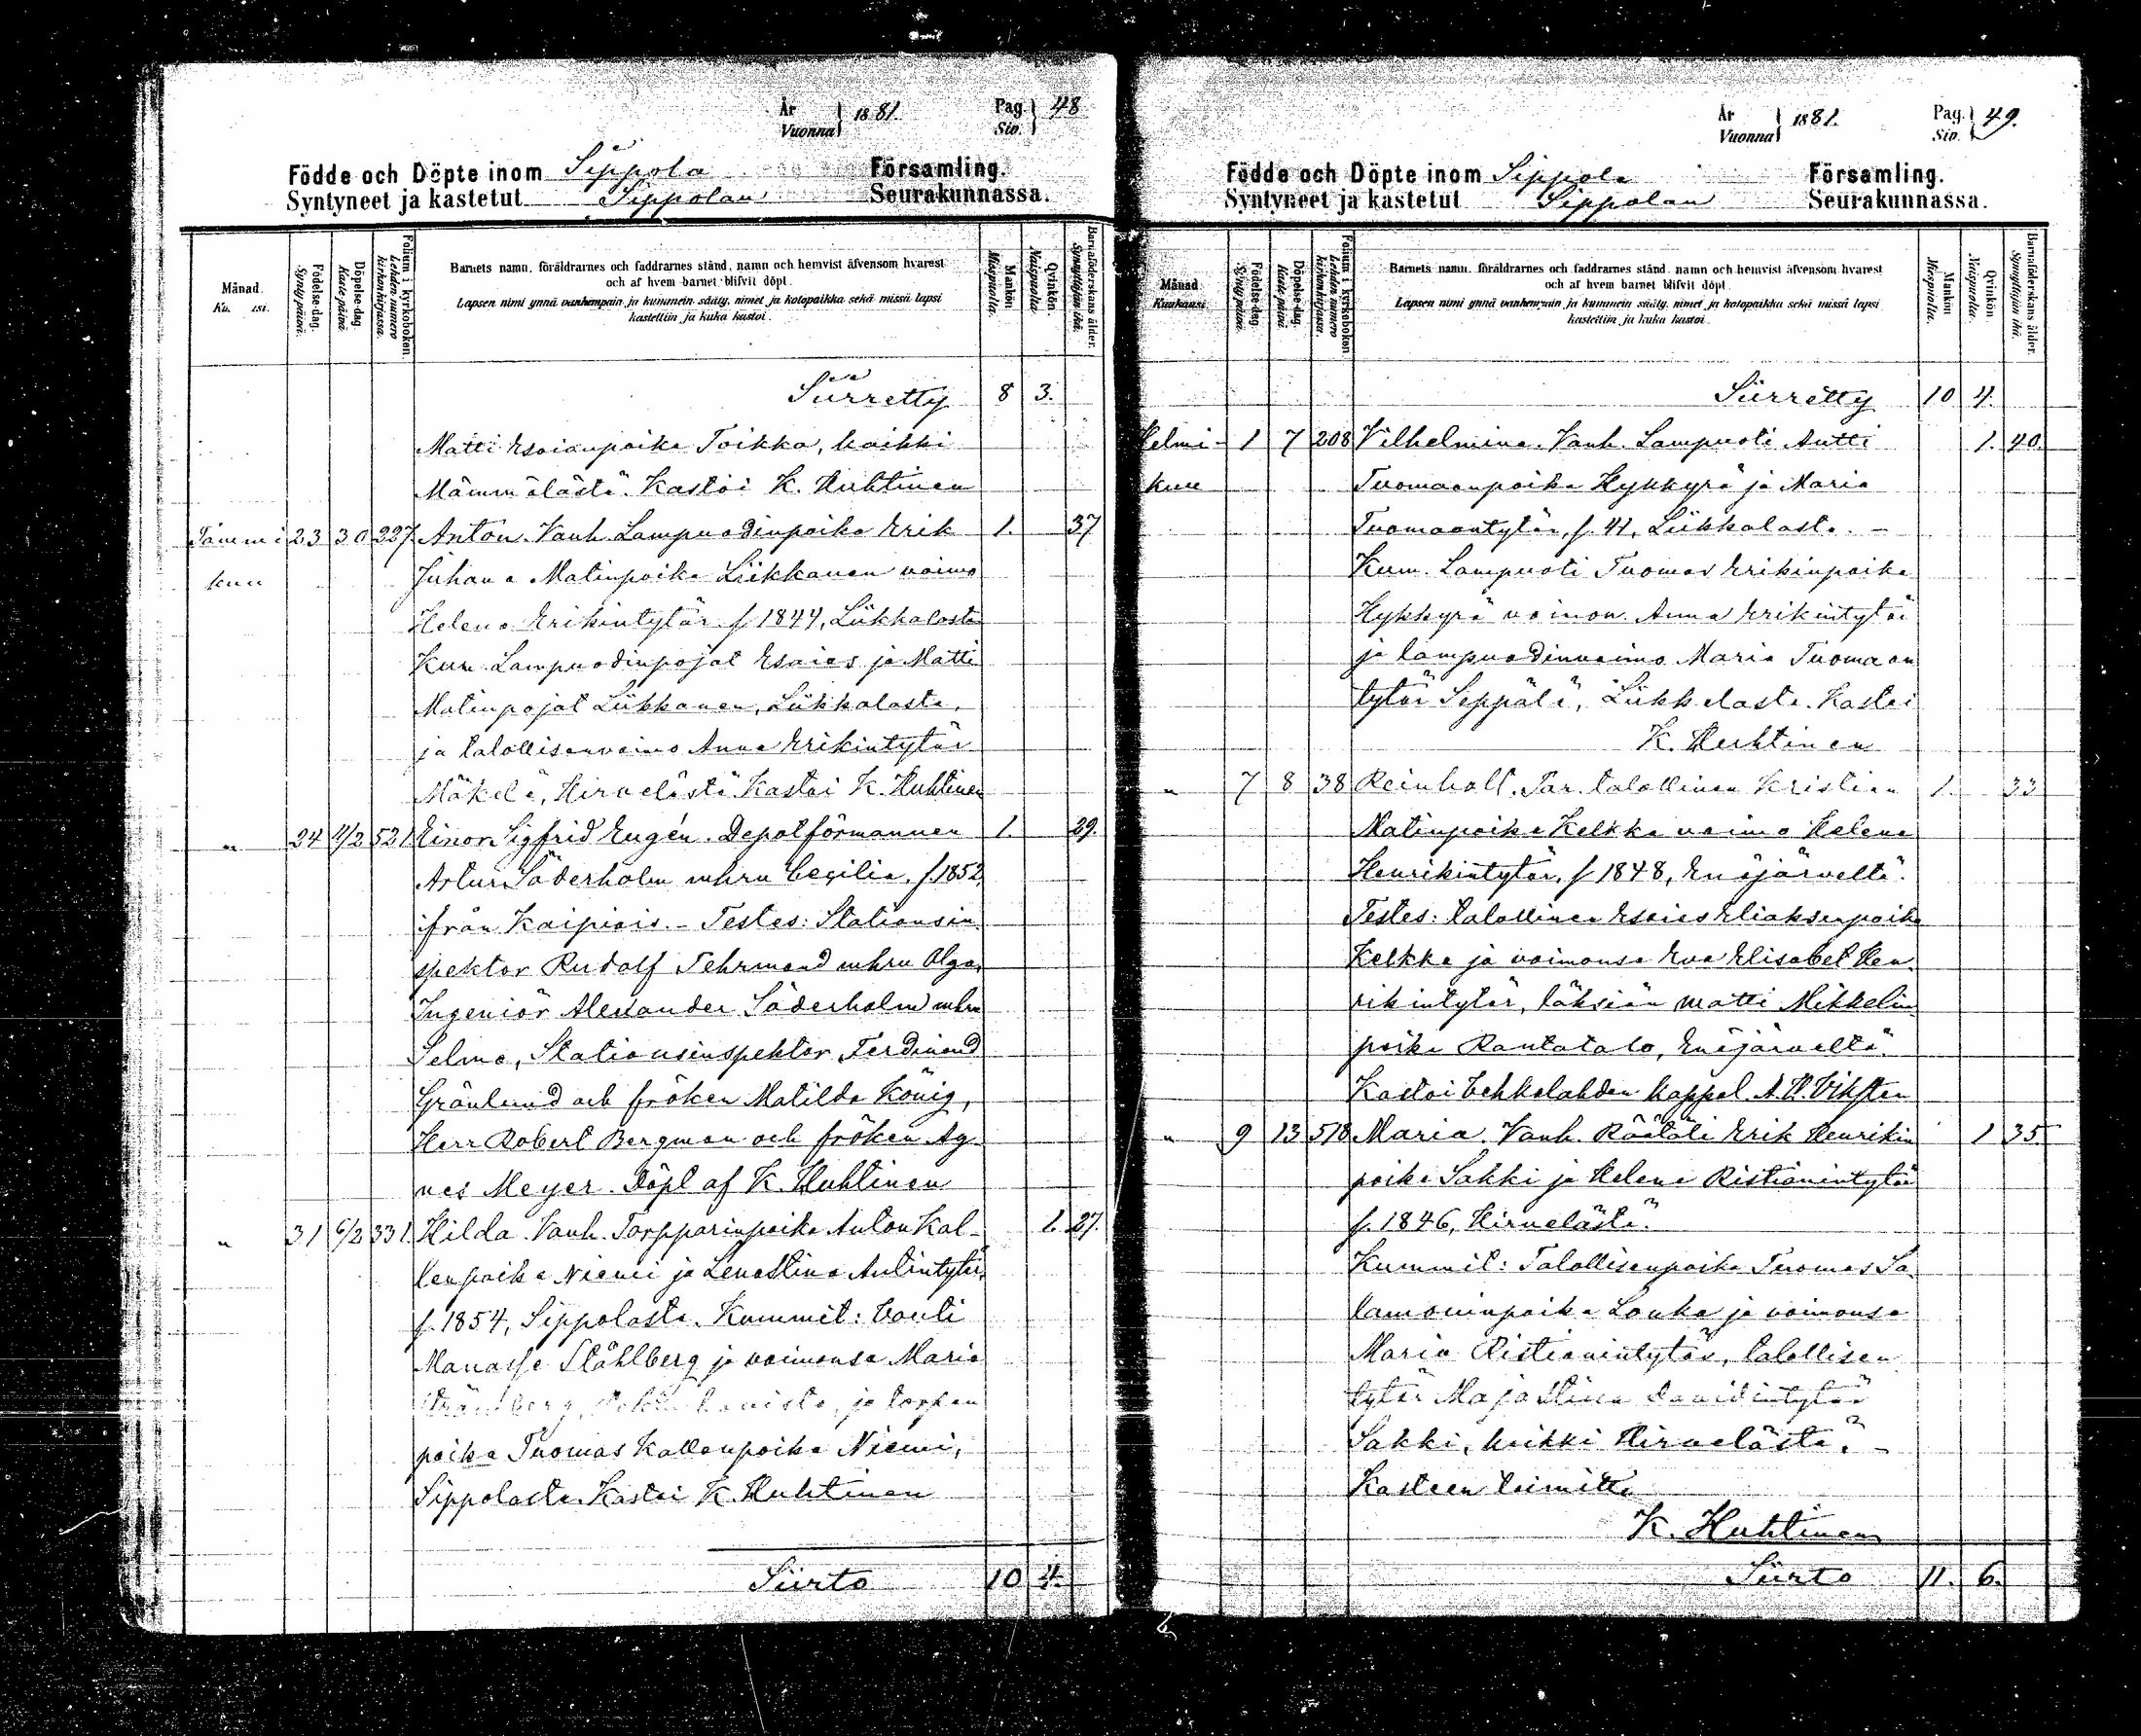 År Vuonna 1881. Pag. Siv. 48
Födde och Döpte inom Sippola Församling.
Syntyneet ja kastetut Sippolan Seurakunnassa.
Månad. Födelse-dag. Synty päivä. Döpelse-dag. Kaste päivä. Folium i kyrkoboken. Lehden numero kirkonkirjassa.
Barnets namn, föräldrarnes och faddrarnes stånd, namn och hemvist äfvensom hvarest
och af hvem barnet blifvit döpt.
Lapsen nimi ynnä vanhempain ja kummein sääty, nimet ja kotopaikka sekä missä lapsi
kastettiin ja kuka kastoi.
Mankön. Miespuolta. Qvinkön. Naispuolta. Barnaföderskans ålder. Synnyttäjän ikä.
Siirretty 8 3.
Matti Esaianpoika Toikka, kaikki
Mämmälästä. Kastoi K. Huhtinen
Tammi 23 30 227. Anton. Vanh. Lampuodinpoika Erik 1. 37
kuu Juhana Matinpoika Liikkanen vaimo
Helena Erikintytär f 1844, Liikkalasta
Kum. Lampuodinpojat Esaias ja Matti
Matinpojat Liikkanen, Liikkalasta,
ja talollisenvaimo Anna Erikintytär
Mäkelä, Hirvelästä Kastoi K. Huhtinen
" 24 4/2 521 Einar Sigfrid Eugén. Depotförmannen 1. 29.
Artur Söderholm m hru Cecilia, f. 1852,
från Kaipiais. - Testes: Stationsin
spektor Rudolf Tehrmand m hru Olga,
Ingeniör Alexander Söderholm m hru
Selma, Stationsinspektor Ferdinand
Grönlund och fröken Matilda König,
Herr Robert Bergman och fröken Ag-
nes Meyer. Döpt af K. Huhtinen
" 31 6/2 331. Hilda. Vanh. Torpparinpoika Anton Kal- 1. 27.
lenpoika Niemi ja Lenastina Antintytär,
f. 1854, Sippolasta. Kummit: Vouti
Manasse Ståhlberg ja vaimonsa Maria
ja torpan
poika Tuomas Kallenpoika Niemi,
Sippolasta. Kastoi K. Huhtinen
Siirto 10 4.
År Vuonna 1881. Pag. Siv. 49.
Födde och Döpte inom Sippola Församling.
Syntyneet ja kastetut Sippolan Seurakunnassa.
Månad Kuukausi Födelse-dag. Synty päivä. Döpelse-dag. Kaste päivä. Folium i kyrkoboken. Lehden numero kirkonkirjassa.
Barnets namn, föräldrarnes och faddrarnes stånd, namn och hemvist äfvensom hvarest
och af hvem barnet blifvit döpt.
Lapsen nimi ynnä vanhempain ja kummein sääty, nimet ja kotopaikka sekä missä lapsi
kastettiin ja kuka kastoi.
Mankön Miespuolta. Qvinkön Naispuolta. Barnaföderskans ålder. Synnyttäjän ikä.
Siirretty 10 4.
Helmi- 1 7 208 Vilhelmina. Vanh. Lampuoti Antti 1. 40.
kuu Tuomaanpoika Hykkyrä ja Maria
Tuomaantytär, f. 41, Liikkalasta. -
Kum. Lampuoti Tuomas Erikinpoika
Hykkyrä vaimon. Anna Erikintytär
ja lampuodinvaimo Maria Tuomaan
tytär Seppälä, Liikkalasta. Kastoi
K. Huhtinen
" 7 8 38 Reinholt. Tar. talollinen Kristian 1. 33
Matinpoika Kelkka vaimo Helena
Henrikintytär, f 1848, Enäjärveltä.
Testes: talollinen Esaias Eliaksenpoika
Kelkka ja vaimonsa Eva Elisabet Hen-
rikintytär, läksiän Matti Mikkelin
poika Rantatalo, Enäjärveltä.
Kastoi Vehkalahden kappal. A. H. Viksten
" 9 13 518 Maria. Vanh. Räätäli Erik Henrikin 1 35
poika Sakki ja Helena Ristianintytär
f. 1846, Hirvelästä.
Kummit: Talollisenpoika Tuomas Sa-
lamoninpoika Louka ja vaimonsa
Maria Ristianintytär, talollisen
tytär Majastina Davidintytär
Sakki, kaikki Hirvelästä. -
Kasteen toimitti
K. Huhtinen
Siirto 11. 6.